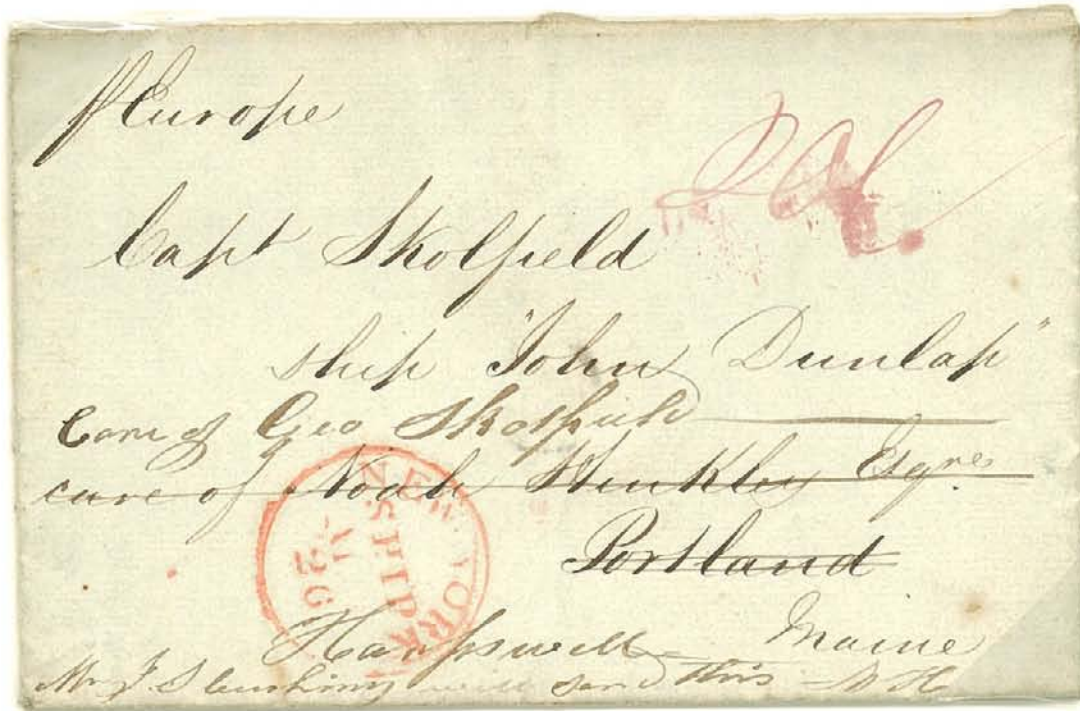 p Europe
Capt Skolfield
ship "John Dunlap"
Care of Geo Skolfield
care of Noah Hinkley Esqre
Portland
NEW YORK
SHIP
26
Harpswell Maine
Mr J S Cushing will send this N H